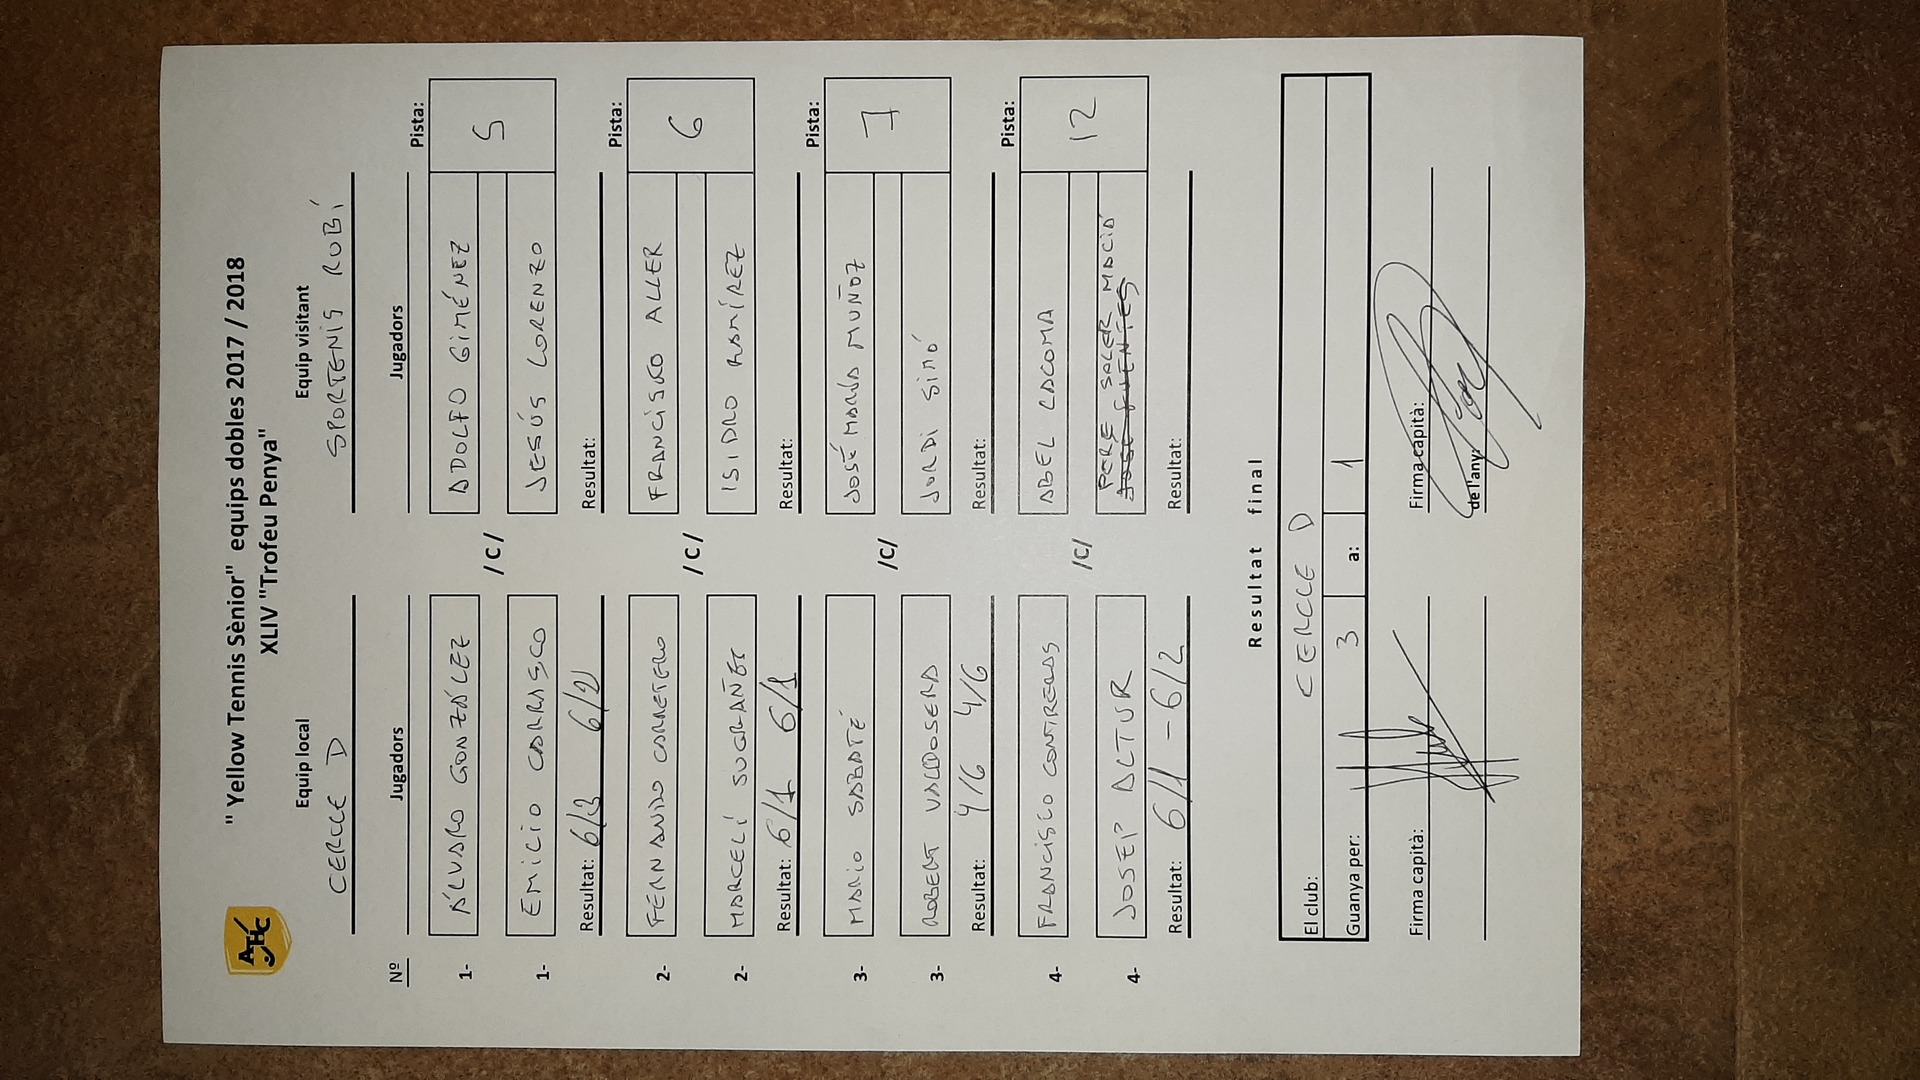 " Yellow Tennis Sènior" equips dobles 2017 / 2018
XLIV "Trofeu Penya"
Equip local Equip visitant
CERCLE D SPORTENIS RUBÍ
Nº Jugadors Jugadors Pista:
1- ÁLVARO GONZÁLEZ ADOLFO GIMÉNEZ 5
/C/
1- EMILIO CARRASCO JESÚS LORENZO
Resultat: 6/3 6/2 Resultat:
Pista:
2- FERNANDO CARRETERO FRANCISCO ALLER 6
/C/
2- MARCELÍ SUGRAÑES ISIDRO RAMÍREZ
Resultat: 6/1 6/1 Resultat:
Pista:
3- MARIO SABATÉ JOSÉ MARÍA MUÑOZ 7
/C/
3- ROBERT VALLDOSERA JORDI SIMÓ
Resultat: 4/6 4/6 Resultat:
Pista:
4- FRANCISCO CONTRERAS ABEL LACOMA 12
/C/
4- JOSEP ALTUR PERE SOLER MACIÓ
JOSE FUENTES
Resultat: 6/1 - 6/2 Resultat:
Resultat final
El club: CERCLE D
Guanya per: 3 a: 1
Firma capità: Firma capità:
de l'any: